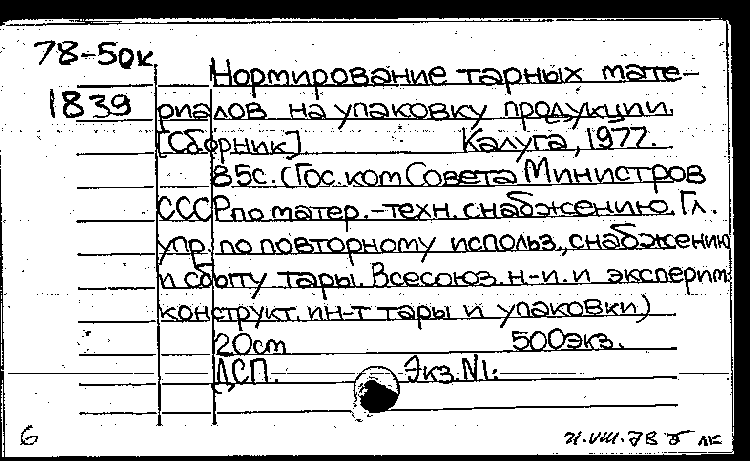 78-50к
Нормирование тарных мате-
1839 риалов на упаковку продукции.
[Сборник] Калуга, 1977.
85с. (Гос. ком Совета Министров
СССР по матер.-техн. снабжению. Гл.
упр. по повторному использ., снабжению
и сбыту тары. Всесоюз. н-и. и эксперим
конструкт. ин-т тары и упаковки)
20cm 500экз.
ДСП. Экз.N1:
6 21.VIII.78